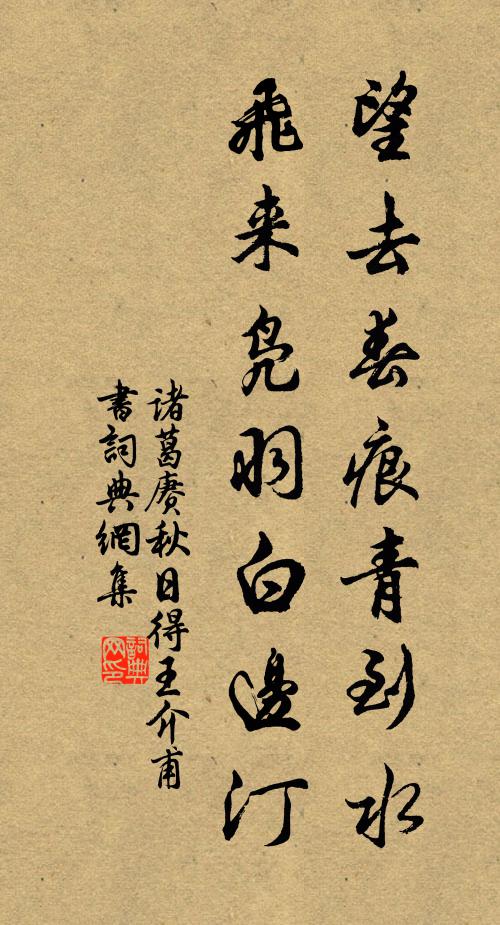 望去春痕青到水
飛来鳧羽白邊汀
诸葛赓秋日得王介甫
書詞典網集
詞典网印